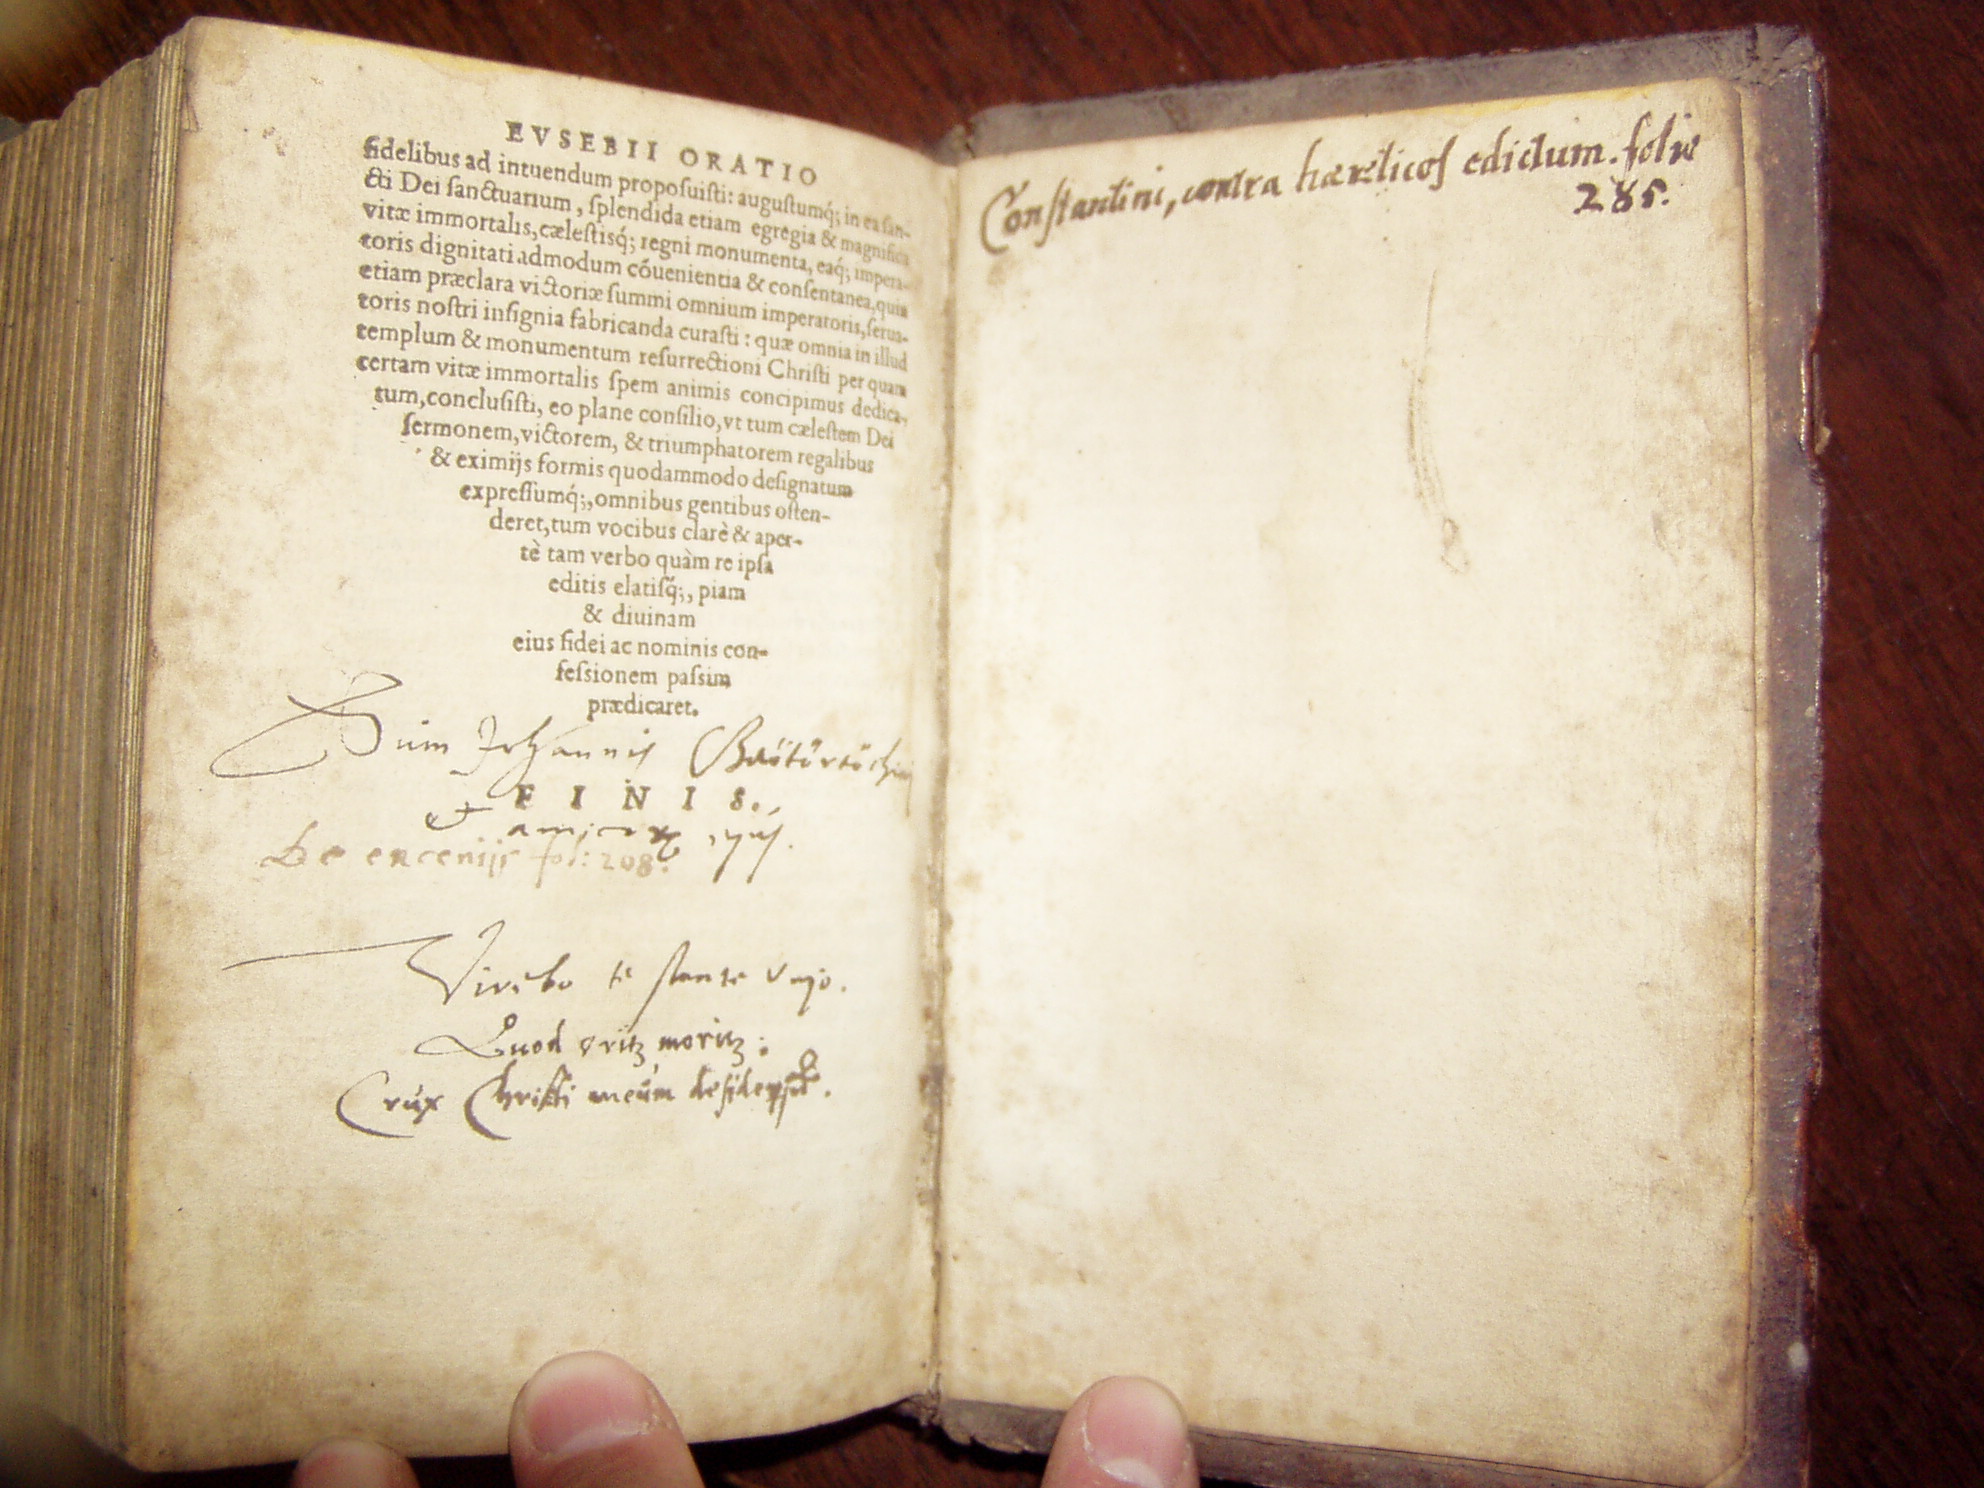 EVSEBII ORATIO
fidelibus ad intuendum proposuisti: augustumq́;; in ea san-
cti Dei sanctuarium, splendida etiam egregia & magnifica
vitæ immortalis, cælestisq́;; regni monumenta, eaq́;; impera-
toris dignitati admodum cóuenientia & consentanea, quin
etiam præclara victoriæ summi omnium imperatoris, serua-
toris nostri insignia fabricanda curasti: quæ omnia in illud
templum & monumentum resurrectioni Christi per quam
certam vitæ immortalis spem animis concipimus dedica-
tum, conclusisti, eo plane consilio, vt tum cælestem Dei
sermonem, victorem, & triumphatorem regalibus
& eximijs formis quodammodo designatum
expressumq́;;, omnibus gentibus osten-
deret, tum vocibus clarè & aper-
tè tam verbo quàm re ipsa
editis elatisq́;;, piam
& diuinam
eius fidei ac nominis con-
fessionem passim
prædicaret.
Sum Johannis
FINIS.
et
De encenijs fol: 208.
Quod oritz moritz:
Crux Christi meum
Constantini, contra hæreticos edictum. folio
285.